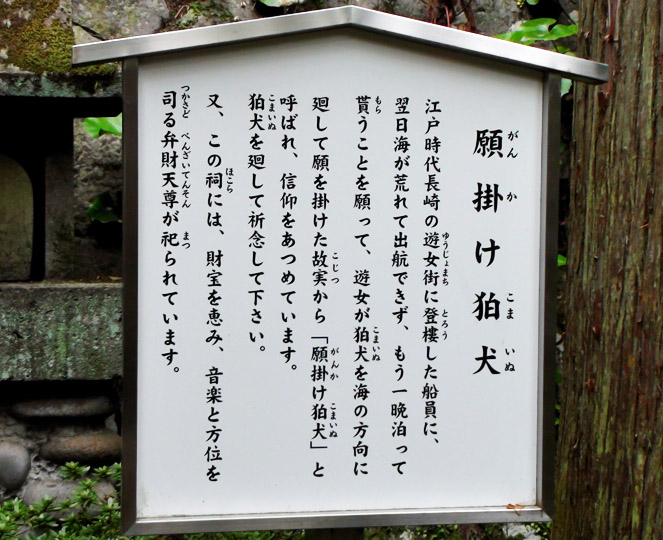 願掛け狛犬
江戸時代長崎の遊女街に登楼した船員に、
翌日海が荒れて出航できず、もう一晩泊って
貰うことを願って、遊女が狛犬を海の方向に
廻して願を掛けた故実から「願掛け狛犬」と
呼ばれ、信仰をあつめています。
狛犬を廻して祈念して下さい。
又、この祠には、財宝を恵み、音楽と方位を
司る弁財天尊が祀られています。